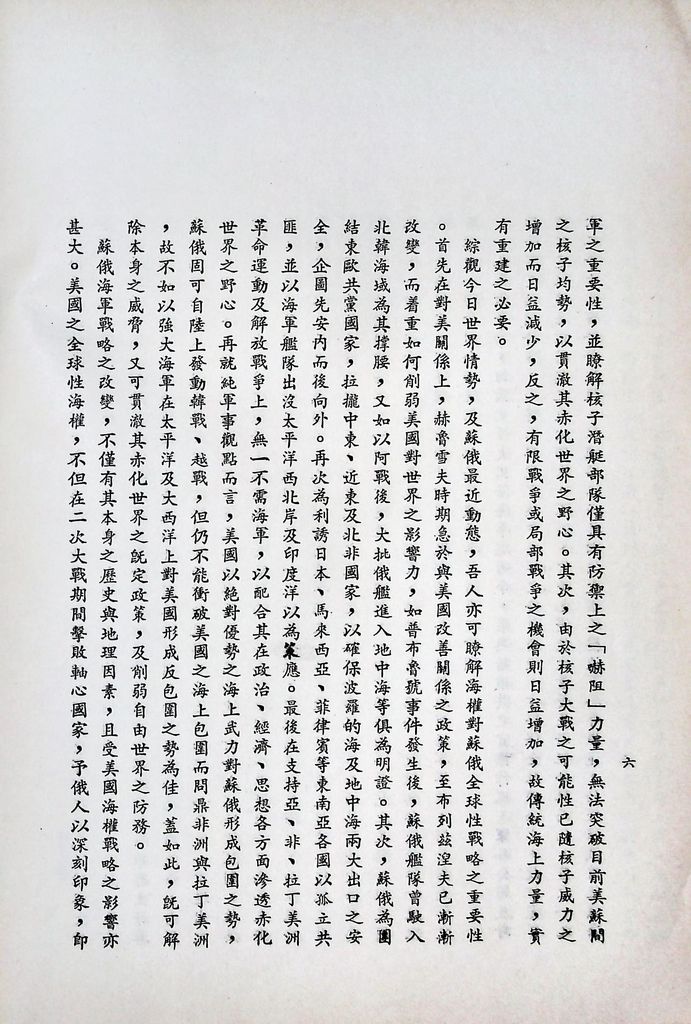 軍之重要性，並瞭解核子潛艇部隊僅具有防禦上之「嚇阻」力量，無法突破目前美蘇間
之核子均勢，以貫澈其赤化世界之野心。其次，由於核子大戰之可能性已隨核子威力之
增加而日益減少，反之，有限戰爭或局部戰爭之機會則日益增加，故傳統海上力量，實
有重建之必要。
綜觀今日世界情勢，及蘇俄最近動態，吾人亦可瞭解海權對蘇俄全球性戰略之重要性
。首先在對美關係上，赫魯雪夫時期急於與美國改善關係之政策，至布列茲湼夫已漸漸
改變，而着重如何削弱美國對世界之影響力，如普布魯號事件發生後，蘇俄艦隊曾駛入
北韓海域為其撐腰，又如以阿戰後，大批俄艦進入地中海等俱為明證。其次，蘇俄為團
結東歐共黨國家，拉攏中東、近東及北非國家，以確保波羅的海及地中海兩大出口之安
全，企圖先安內而後向外。再次為利誘日本、馬來西亞、菲律賓等東南亞各國以孤立共
匪，並以海軍艦隊出沒太平洋西北岸及印度洋以為策應。最後在支持亞、非、拉丁美洲
革命運動及解放戰爭上，無一不需海軍，以配合其在政治、經濟、思想各方面滲透赤化
世界之野心。再就純軍事觀點而言，美國以絕對優勢之海上武力對蘇俄形成包圍之勢，
蘇俄固可自陸上發動韓戰、越戰，但仍不能衝破美國之海上包圍而問鼎非洲與拉丁美洲
，故不如以強大海軍在太平洋及大西洋上對美國形成反包圍之勢為佳，蓋如此，旣可解
除本身之威脅，又可貫澈其赤化世界之旣定政策，及削弱自由世界之防務。
蘇俄海軍戰略之改變，不僅有其本身之歷史與地理因素，且受美國海權戰略之影響亦
甚大。美國之全球性海權，不但在二次大戰期間擊敗軸心國家，予俄人以深刻印象，卽
六